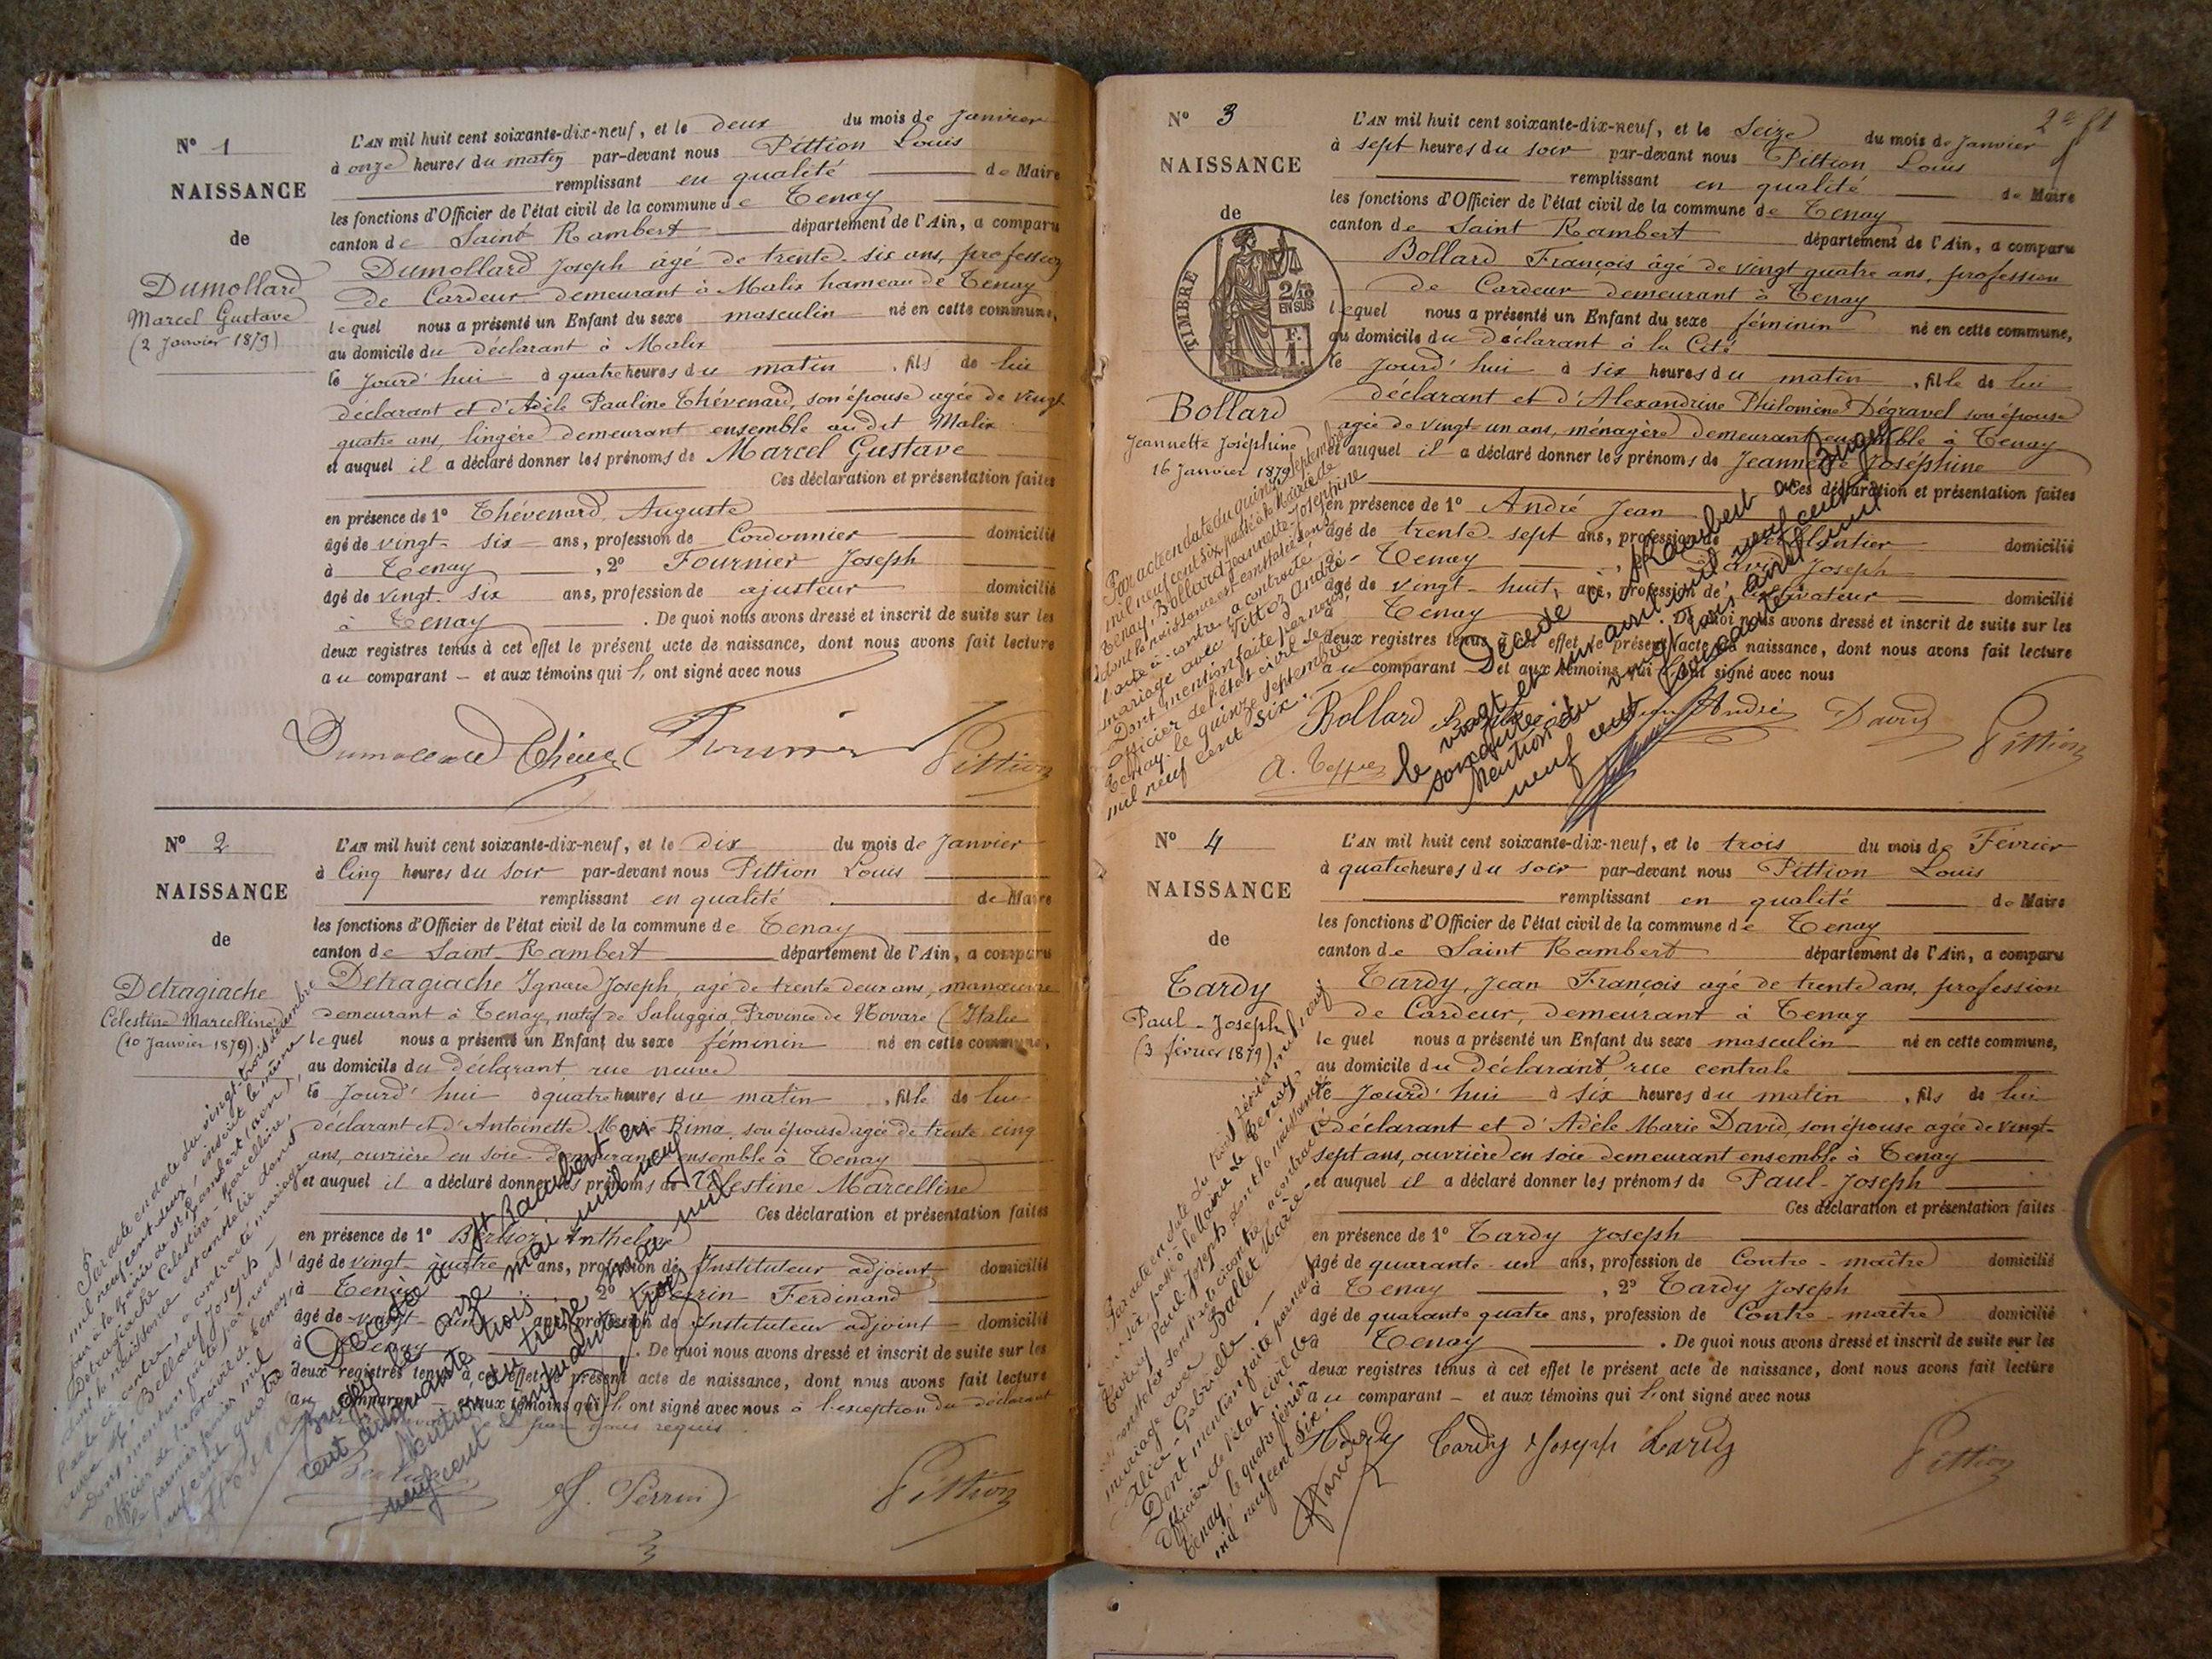 N° 1
NAISSANCE
de
Dumollard
Marcel Gustave
(2 Janvier 1879)
L'AN mil huit cent soixante-dix-neuf, et le deux du mois de Janvier
à onze heures du matin par-devant nous Pittion Louis
remplissant en qualité de Maire
les fonctions d'Officier de l'état civil de la commune de Tenay
canton de Saint Rambert département de l'Ain, a comparu
Dumollard Joseph agé de trente-six ans, profession
de Cardeur demeurant à Malix hameau de Tenay
lequel nous a présenté un Enfant du sexe masculin né en cette commune,
au domicile du déclarant à Malix
le jourd'hui à quatre heures du matin, fils de lui
déclarant et d'Adèle Pauline Thévenard, son épouse agée de vingt
quatre ans, lingère demeurant ensemble au dit Malix
et auquel il a déclaré donner les prénoms de Marcel Gustave
Ces déclaration et présentation faites
en présence de 1° Thévenard Auguste
âgé de vingt-six ans, profession de Cordonnier domicilié
à Tenay, 2° Fournier Joseph
âgé de vingt-six ans, profession de ajusteur domicilié
à Tenay. De quoi nous avons dressé et inscrit de suite sur les
deux registres tenus à cet effet le présent acte de naissance, dont nous avons fait lecture
au comparant - et aux témoins qui l'ont signé avec nous
Dumollard Fournier Pittion
N° 2
NAISSANCE
de
Detragiache
Célestine Marcelline
(10 Janvier 1879)
L'AN mil huit cent soixante-dix-neuf, et le dix du mois de Janvier
à Cinq heures du soir par-devant nous Pittion Louis
remplissant en qualité de Maire
les fonctions d'Officier de l'état civil de la commune de Tenay
canton de Saint-Rambert département de l'Ain, a comparu
Detragiache Ignace Joseph, agé de trente deux ans, manoeuvre
demeurant à Tenay, natif de Saluggia, Province de Novare (Italie
lequel nous a présenté un Enfant du sexe féminin né en cette commune,
au domicile du déclarant, rue neuve
le jourd'hui à quatre heures du matin, fille de lui
déclarant et d'Antoinette Marie Bima, son épouse agée de trente cinq
ans, ouvrière en soie demeurant ensemble à Tenay
et auquel il a déclaré donner les prénoms de Célestine Marcelline
Ces déclaration et présentation faites
en présence de 1° Anthelme
âgé de vingt-quatre ans, profession de Instituteur adjoint domicilié
à Tenay 2° Perrin Ferdinand
âgé de vingt ans, profession de Instituteur adjoint domicilié
à Tenay. De quoi nous avons dressé et inscrit de suite sur les
deux registres tenus à cet effet le présent acte de naissance, dont nous avons fait lecture
au comparant et aux témoins qui l'ont signé avec nous à l'exception du déclarant
par nous requis
J. Perrin Pittion
Par acte en date du vingt trois décembre
mil neuf cent deux, inscrit le même
jour à la Mairie de St Rambert (Ain),
Detragiache Célestine-Marcelline,
dont la naissance est constatée dans
l'acte ci-contre, a contracté mariage
avec Mr Bellouf Joseph -
Dont mention faite par nous,
officier de l'état civil de Tenay,
le premier janvier mil
neuf cent quatre
Décédée à St Rambert en
Bugey le onze mai mil neuf
cent cinquante trois
Mention du treize mai mil
neuf cent cinquante trois
N° 3
NAISSANCE
de
TIMBRE
2/10
EN SUS
F.
1.
Bollard
Jeannette Joséphine
16 Janvier 1879
L'AN mil huit cent soixante-dix-neuf, et le Seize du mois de Janvier
à sept heures du soir par-devant nous Pittion Louis
remplissant en qualité de Maire
les fonctions d'Officier de l'état civil de la commune de Tenay
canton de Saint Rambert département de l'Ain, a comparu
Bollard François âgé de vingt quatre ans, profession
de Cardeur demeurant à Tenay
lequel nous a présenté un Enfant du sexe féminin né en cette commune,
au domicile du déclarant à la Cité
le jourd'hui à six heures du matin, fille de lui
déclarant et d'Alexandrine Philomène Dégravel son épouse
agée de vingt-un ans, ménagère demeurant ensemble à Tenay
et auquel il a déclaré donner les prénoms de Jeannette Joséphine
Ces déclaration et présentation faites
en présence de 1° André Jean
âgé de trente-sept ans, profession de domicilié
à Tenay, 2° David Joseph
âgé de vingt-huit, ans, profession de Cultivateur domicilié
à Tenay. De quoi nous avons dressé et inscrit de suite sur les
deux registres tenus à cet effet le présent acte de naissance, dont nous avons fait lecture
au comparant et aux témoins qui l'ont signé avec nous
Bollard André David Pittion
Par acte en date du quinze septembre
mil neuf cent six, passé à la Mairie de
Tenay, Bollard Jeannette-Joséphine
dont la naissance est constatée dans
l'acte ci-contre, a contracté
mariage avec Vittoz André.
Dont mention faite par nous,
officier de l'état civil de
Tenay, le quinze septembre
mil neuf cent six.
Décédée à St Rambert en Bugey
le vingt et un avril mil neuf cent
soixante.
Mention du vingt trois avril mil
neuf cent soixante
N° 4
NAISSANCE
de
Tardy
Paul-Joseph
(3 février 1879)
L'AN mil huit cent soixante-dix-neuf, et le trois du mois de Février
à quatre heures du soir par-devant nous Pittion Louis
remplissant en qualité de Maire
les fonctions d'Officier de l'état civil de la commune de Tenay
canton de Saint Rambert département de l'Ain, a comparu
Tardy, Jean François agé de trente ans, profession
de Cardeur, demeurant à Tenay
lequel nous a présenté un Enfant du sexe masculin né en cette commune,
au domicile du déclarant rue centrale
le jourd'hui à six heures du matin, fils de lui
déclarant et d'Adèle Marie David, son épouse agée de vingt-
sept ans, ouvrière en soie demeurant ensemble à Tenay
et auquel il a déclaré donner les prénoms de Paul-Joseph
Ces déclaration et présentation faites
en présence de 1° Tardy Joseph
âgé de quarante-un ans, profession de Contre-maître domicilié
à Tenay, 2° Tardy Joseph
âgé de quarante quatre ans, profession de Contre-maître domicilié
à Tenay. De quoi nous avons dressé et inscrit de suite sur les
deux registres tenus à cet effet le présent acte de naissance, dont nous avons fait lecture
au comparant - et aux témoins qui l'ont signé avec nous
Tardy Joseph Tardy Pittion
Par acte en date du trois février mil neuf
cent six, passé à la Mairie de Tenay,
Tardy Paul-Joseph dont la naissance
est constatée dans l'acte ci-contre, a contracté
mariage avec Ballet Marie-
Alice-Gabrielle. -
Dont mention faite par nous,
officier de l'état civil de
Tenay, le quatre février
mil neuf cent six.